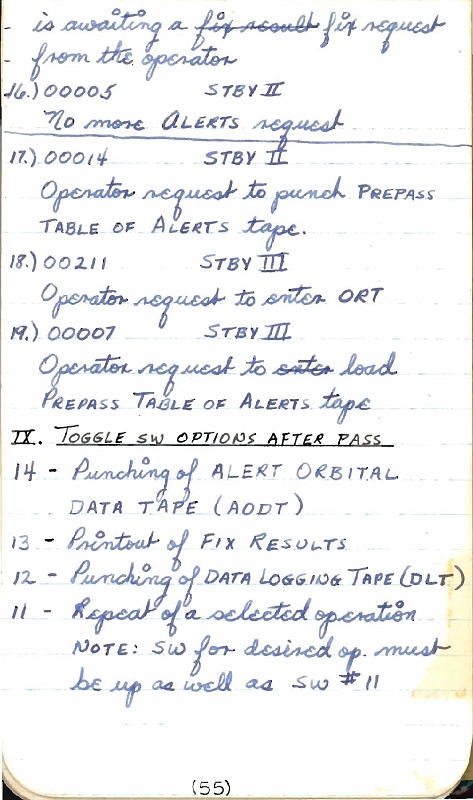 - is awaiting a fix result fix request
- from the operator
16.) 00005 STBY II
No more ALERTS request
17.) 00014 STBY II
Operator request to punch PREPASS
TABLE OF ALERTS tape.
18.) 00211 STBY III
Operator request to enter ORT
19.) 00007 STBY III
Operator request to enter load
PREPASS TABLE OF ALERTS tape
IX. TOGGLE SW OPTIONS AFTER PASS
14 - Punching of ALERT ORBITAL
DATA TAPE (AODT)
13 - Printout of FIX RESULTS
12 - Punching of DATA LOGGING TAPE (DLT)
11 - Repeat of a selected operation
NOTE: SW for desired op. must
be up as well as SW #11
(55)